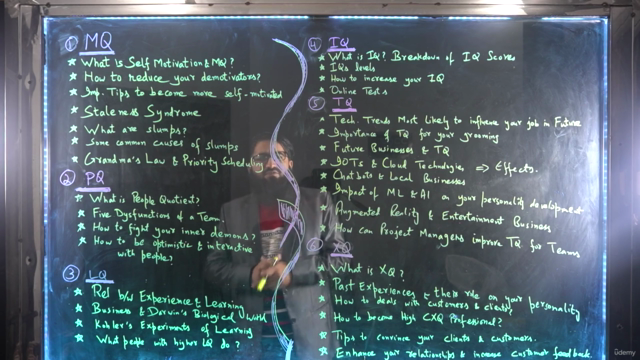 ① MQ
* What is Self Motivation & MQ?
* How to reduce your demotivators?
* Imp. Tips to become more self-motivated
* Staleness Syndrome
* What are slumps?
* Some common causes of slumps
* Grandma's Law & Priority Scheduling
② PQ
* What is People Quotient?
* Five Dysfunctions of a Team.
* How to fight your inner demons?
* How to be optimistic & interactive
with people?
③ LQ
* Rel b/w Experience & Learning
* Business & Darwin's Biological World
* Kohler's Experiments of Learning
* What people with higher LQ do?
④ IQ
* What is IQ? Breakdown of IQ Scores
* IQs levels
* How to increase your IQ
* Online Tests
⑤ TQ
* Tech. Trends Most likely to influence your job in Future
* Importance of TQ for your grooming
* Future Businesses & TQ
* IOTs & Cloud Technologies ⇒ Effects.
* Chatbots & Local Businesses
* Impact of ML & AI on your personality development
* Augmented Reality & Entertainment Business
* How can Project Managers improve TQ for Teams
XQ
* What is XQ?
* Past Experiences & their role on your personality
* How to deals with customers & clients?
* How to become High CXQ Professional?
* Tips to convince your clients & customers.
* Enhance your relationships & increase customer feedback
ûdemy